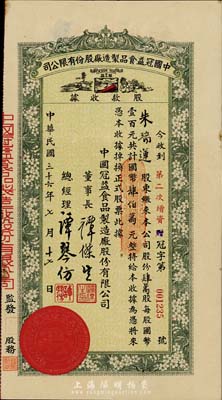 中國冠益食品製造廠股份有限公司
股款收據
冠字第 001235 號
今收到 第二次增資
朱瑞蓮 股東繳來本公司股份肆萬股每股國幣
壹百元共計國幣肆佰萬元整特給本收據為憑將來
憑本收據掉換正式股票此據
中國冠益食品製造廠股份有限公司
董事長
總經理
中華民國三十六年七月十七日
監發
股務
上海陽明拍賣